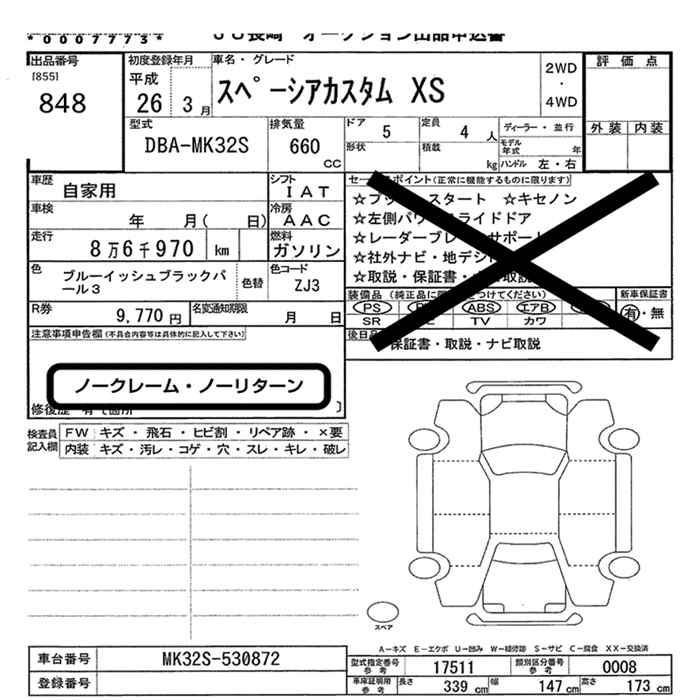 *0007773*
JU長崎 オークション出品申込書
出品番号
[855]
848
初度登録年月
平成
26 3月
車名・グレード
スペーシアカスタム XS
2WD
・
4WD
評価点
外装 内装
型式
DBA-MK32S
排気量
660
CC
ドア 5
定員 4 人
形状
積載 kg
ディーラー・並行
モデル年式 年
ハンドル 左・右
車歴 自家用
シフト IAT
車検 年 月( 日)
冷房 AAC
走行 8万6千970 km
燃料 ガソリン
色 ブルーイッシュブラックパール3
色替
色コード ZJ3
R券 9,770円
名変通知期限 月 日
注意事項申告欄(不具合内容等は具体的に記入して下さい)
ノークレーム・ノーリターン
修復歴
セールスポイント(正常に機能するものに限ります)
スタート ☆キセノン
☆左側パワースライドドア
☆レーダーブレーキサポート
☆社外ナビ・地デジ
☆取説・保証書・ナビ取説
装備品
PS ABS エアB
SR TV カワ
新車保証書
有・無
後日品
保証書・取説・ナビ取説
検査員記入欄
FW キズ・飛石・ヒビ割・リペア跡・×要
内装 キズ・汚レ・コゲ・穴・スレ・キレ・破レ
スペア
A―キズ E―エクボ U―凹み W―補修跡 S―サビ C―腐食 XX―交換済
車台番号 MK32S-530872
登録番号
型式指定番号 参考 17511
類別区分番号 参考 0008
車庫証明用 参考 長さ 339 cm 幅 147 cm 高さ 173 cm